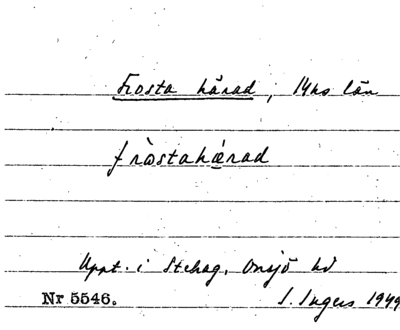 Frosta härad, Mhs län
fròstahǽrad
Uppt. i Stehag, Onsjö hd
Nr 5546. I. Ingers 1949